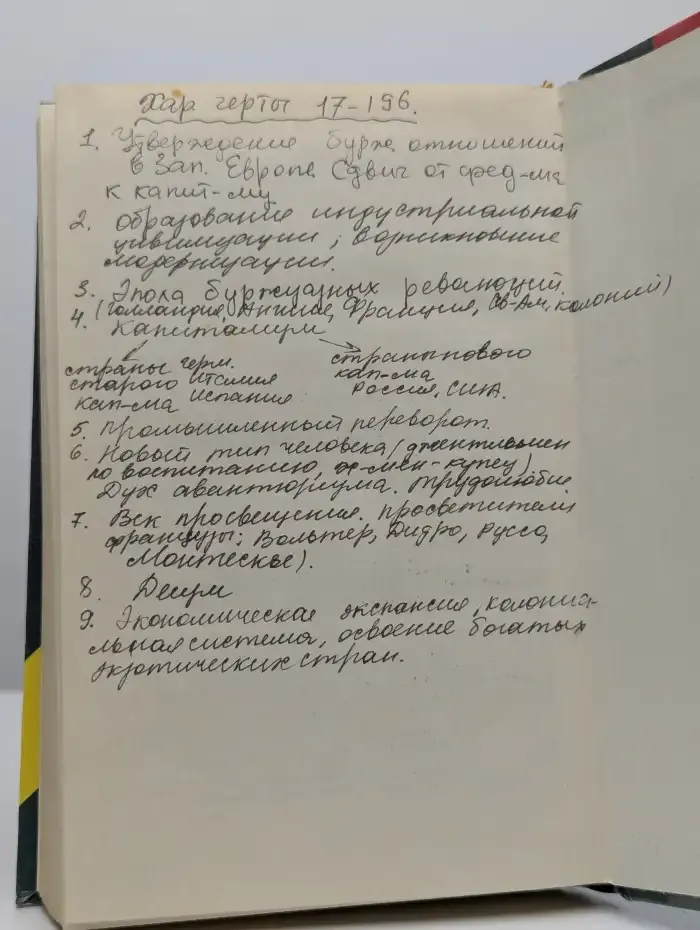 Хар черты 17-19в.
1. Утверждение бурж. отношений
в Зап. Европе. Сдвиг от фед-ма
к капит-му
2. Образование индустриальной
цивилизации; возникновение
модернизации.
3. Эпоха буржуазных революций.
(Голландия, Англия, Франция, Св-Ам, колоний)
4. Капитализм
страны герм.
старого Италия
кап-ма Испания
страны нового
кап-ма
Россия, США.
5. Промышленный переворот.
6. Новый тип человека (джентльмен
по воспитанию, -мен-купец)
Дух авантюризма. Трудолюбие.
7. Век просвещения. Просветители
французы: Вольтер, Дидро, Руссо,
Монтескье).
8. Деизм
9. Экономическая экспансия, колониа-
льная система, освоение богатых
экзотических стран.